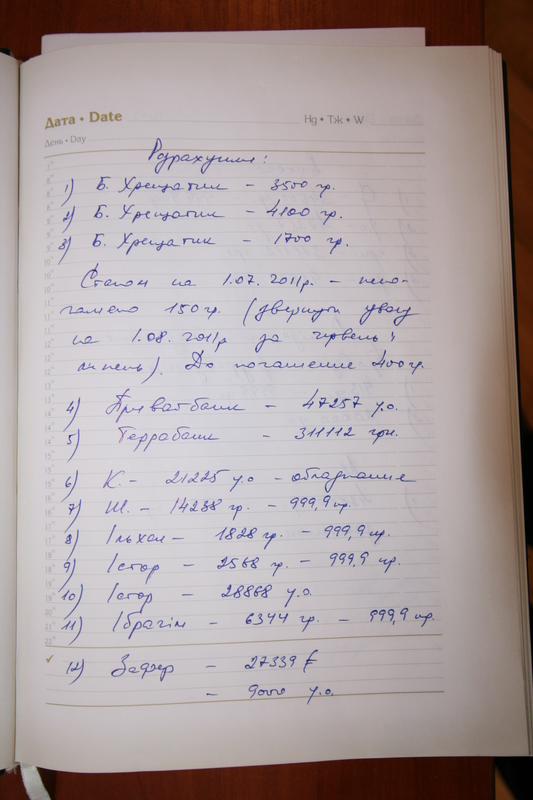 Дата • Date
Нд • Тж • W
День • Day
Розрахунки:
1) Б. Хрещатик – 3500 гр.
2) Б. Хрещатик – 4100 гр.
3) Б. Хрещатик – 1700 гр.
Станом на 1.07.2011р. – непо-
гашено 150 гр. (звернути увагу
на 1.08.2011р за червень і
липень). До погашення 400 гр.
4) Приватбанк – 47257 у.о.
5) Террабанк – 311112 грн.
6) К. – 21225 у.о – обладнання
7) Ш. – 14238 гр. – 999,9 пр.
8) Ільхам – 1828 гр. – 999,9 пр.
9) Істор – 2568 гр. – 999,9 пр.
10) Істор – 28868 у.о.
11) Ібрагім – 6344 гр. – 999,9 пр.
12) Зафер – 27339 €
– 9000 у.о.